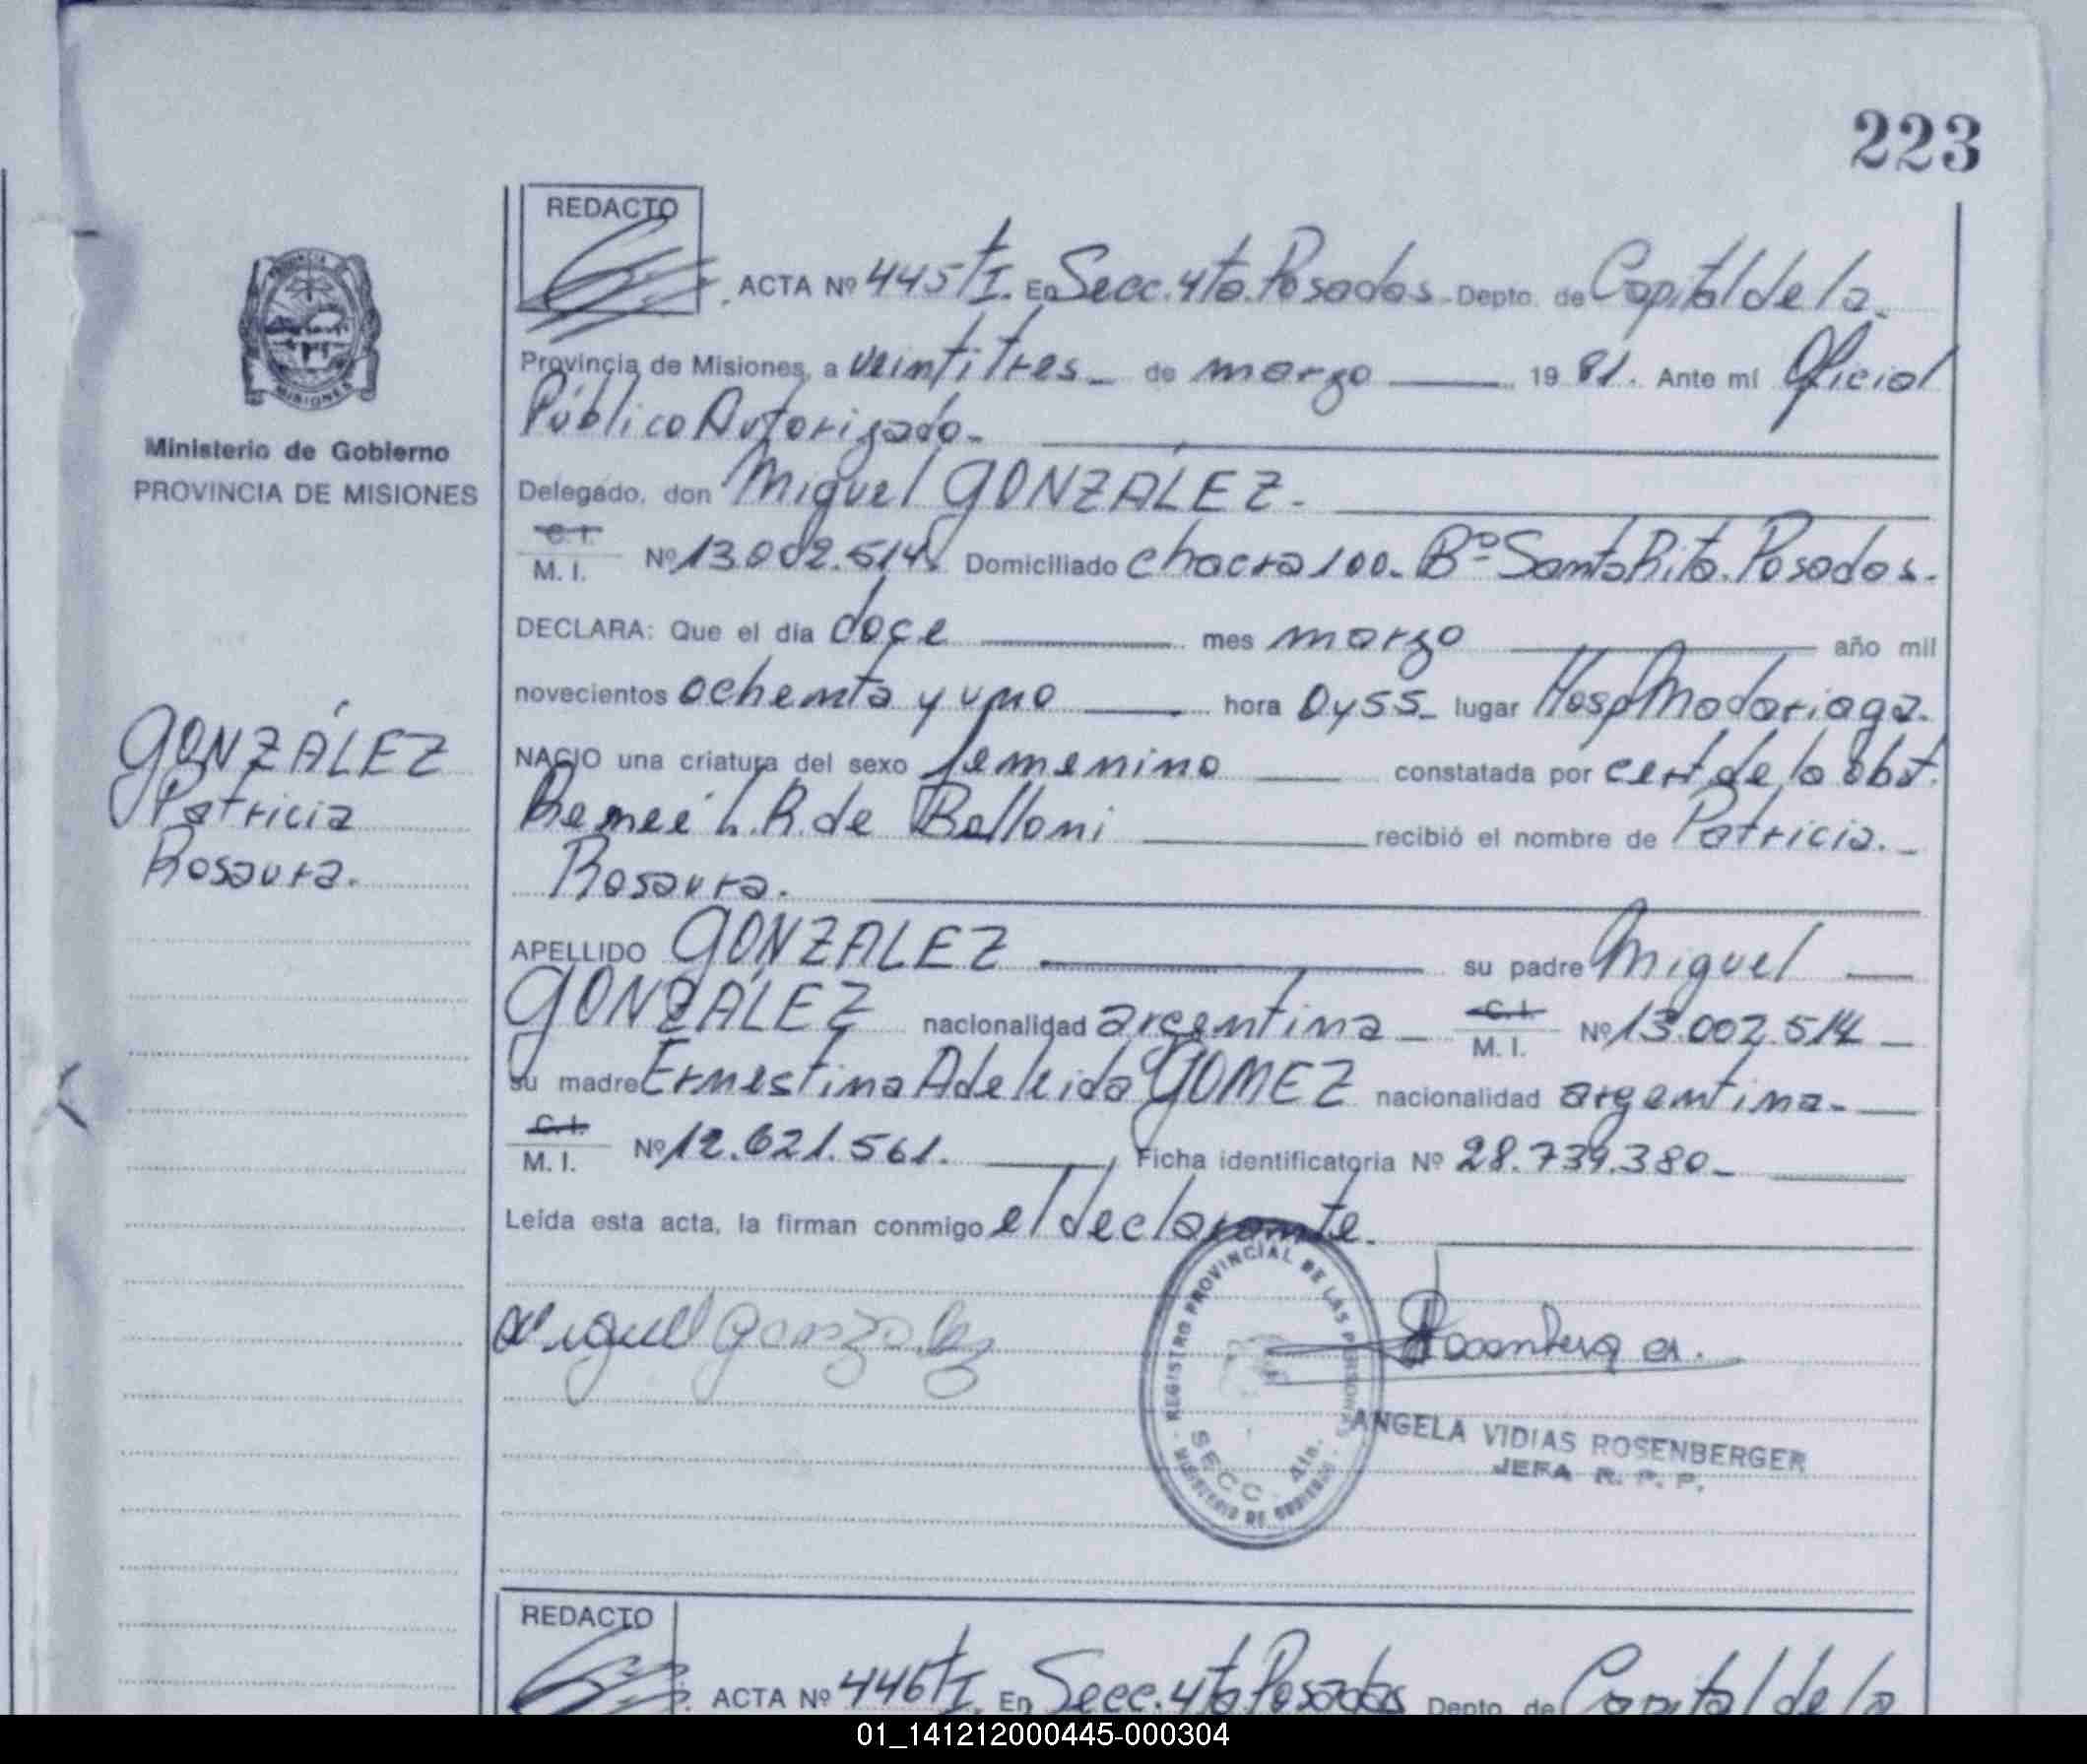 223
REDACTO
ACTA Nº 445 tI. En Secc. 4ta. Posadas. Depto. de Capital de la.
Provincia de Misiones, a veintitres de marzo 19 81. Ante mí Oficial
Público Autorizado.
Ministerio de Gobierno
PROVINCIA DE MISIONES
Delegado, don Miguel GONZÁLEZ.
C. I.
M. I. Nº 13.002.514. Domiciliado chacra 100. Bº Santa Rita. Posadas.
DECLARA: Que el día doce mes marzo año mil
novecientos ochenta y uno hora 0 y 55 lugar Hosp Madariaga.
GONZÁLEZ
Patricia
Rosaura.
NACIO una criatura del sexo femenino constatada por cert. de la obst.
Reneé L. R. de Belloni recibió el nombre de Patricia.
Rosaura.
APELLIDO GONZALEZ su padre Miguel
GONZÁLEZ nacionalidad argentina C. I.
M. I. Nº 13.002.514
su madre Ernestina Adeleida GOMEZ nacionalidad argentina.
C. I.
M. I. Nº 12.621.561. Ficha identificatoria Nº 28.739.380
Leída esta acta, la firman conmigo el declarante.
Miguel Gonzalez
REGISTRO PROVINCIAL DE LAS PERSONAS
SECC. 4ta.
MINISTERIO DE GOBIERNO
ANGELA VIDIAS ROSENBERGER
JEFA R. P. P.
REDACTO
ACTA Nº 446 tI. En Secc. 4ta Posadas Depto. de Capital de la
01_141212000445-000304